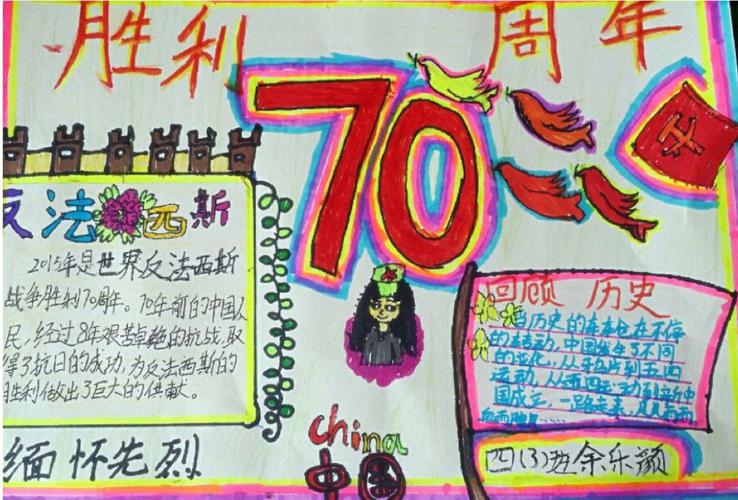 胜利 周年
70
反法西斯
2015年是世界反法西斯
战争胜利70周年。70年前的中国人
民，经过8年艰苦卓绝的抗战，取
得了抗日的成功，为反法西斯的
胜利做出了巨大的供献。
缅怀先烈
china
中国
回顾 历史
当历史的车轮在不停
的转动，中国发生了不同
的变化，从鸦片到五四
运动，从五四运动到新中
国成立，一路走来，
四(3)班余乐颜